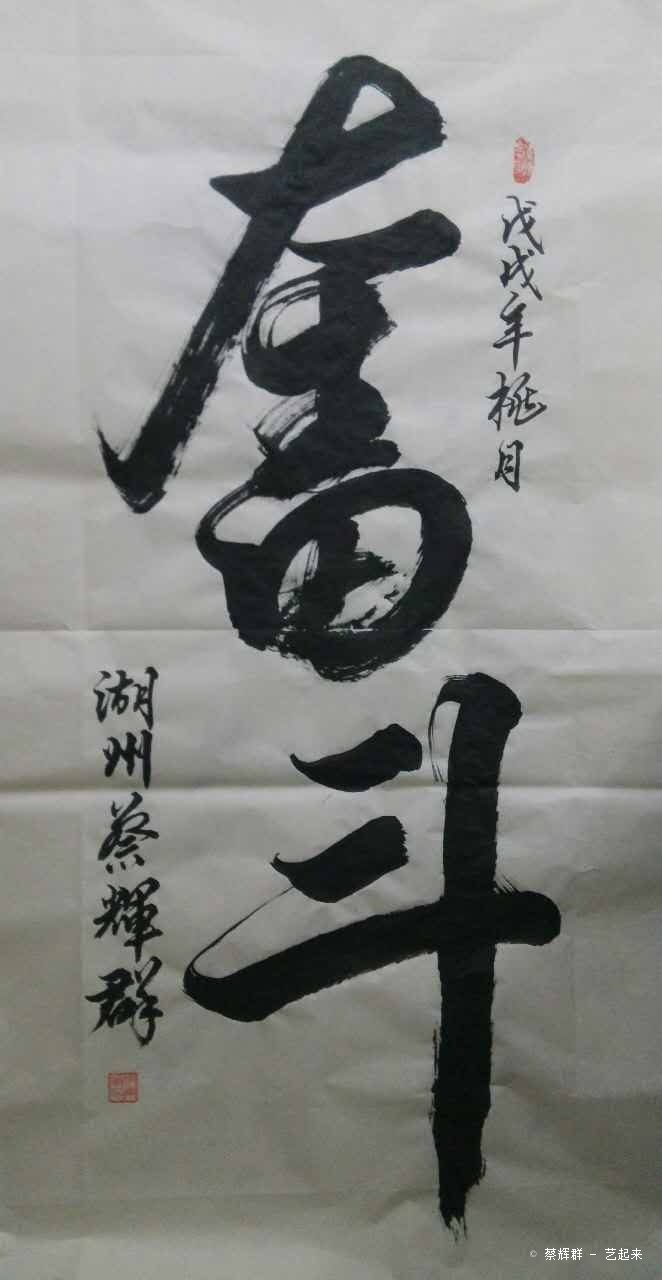 戊戌年桃月
奮斗
湖州蔡輝群
© 蔡辉群 - 艺起来